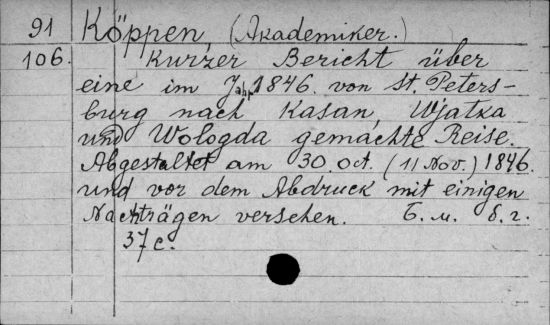 91 Köppen (Akademiker.)
106. Kurzer Bericht über
eine im Jahr 1846. von St. Peters-
burg nach Kasan, Wjatka
und Wologda gemachte Reise.
Abgestattet am 30. Oct. (11 Nov.) 1846.
und vor dem Abdruck mit einigen
Nachträgen versehen. Б. м. б. г.
37 с.